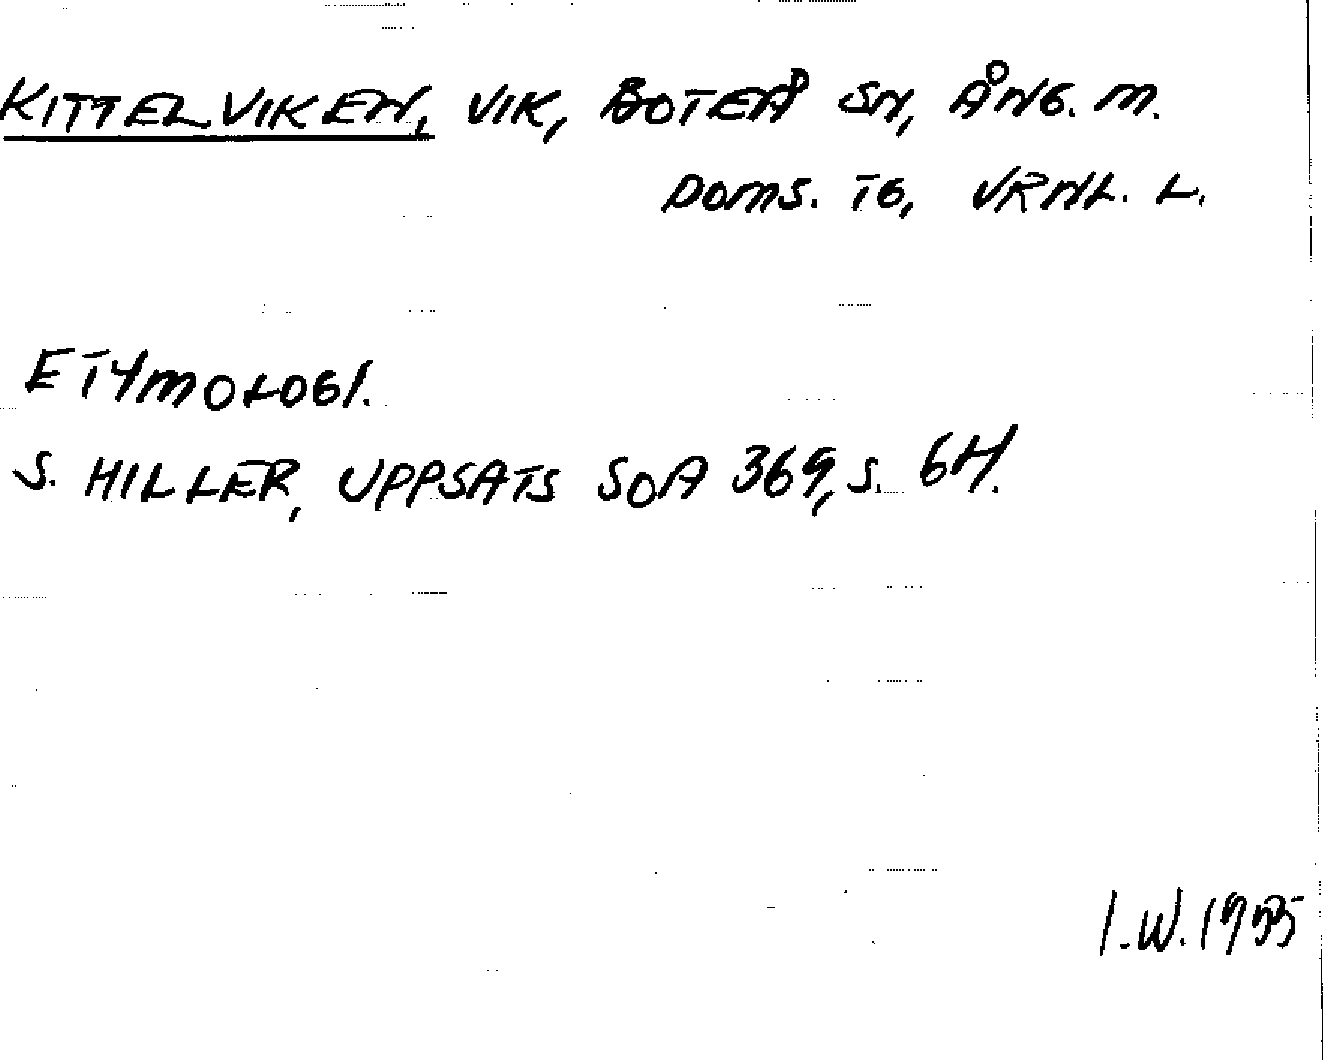 KITTELVIKEN, VIK, BOTEÅ SN, ÅNG. M.
DOMS. TG, VRNL. L.
ETYMOLOGI.
S. HILLER, UPPSATS SOA 369, S. 64.
I.W. 1955